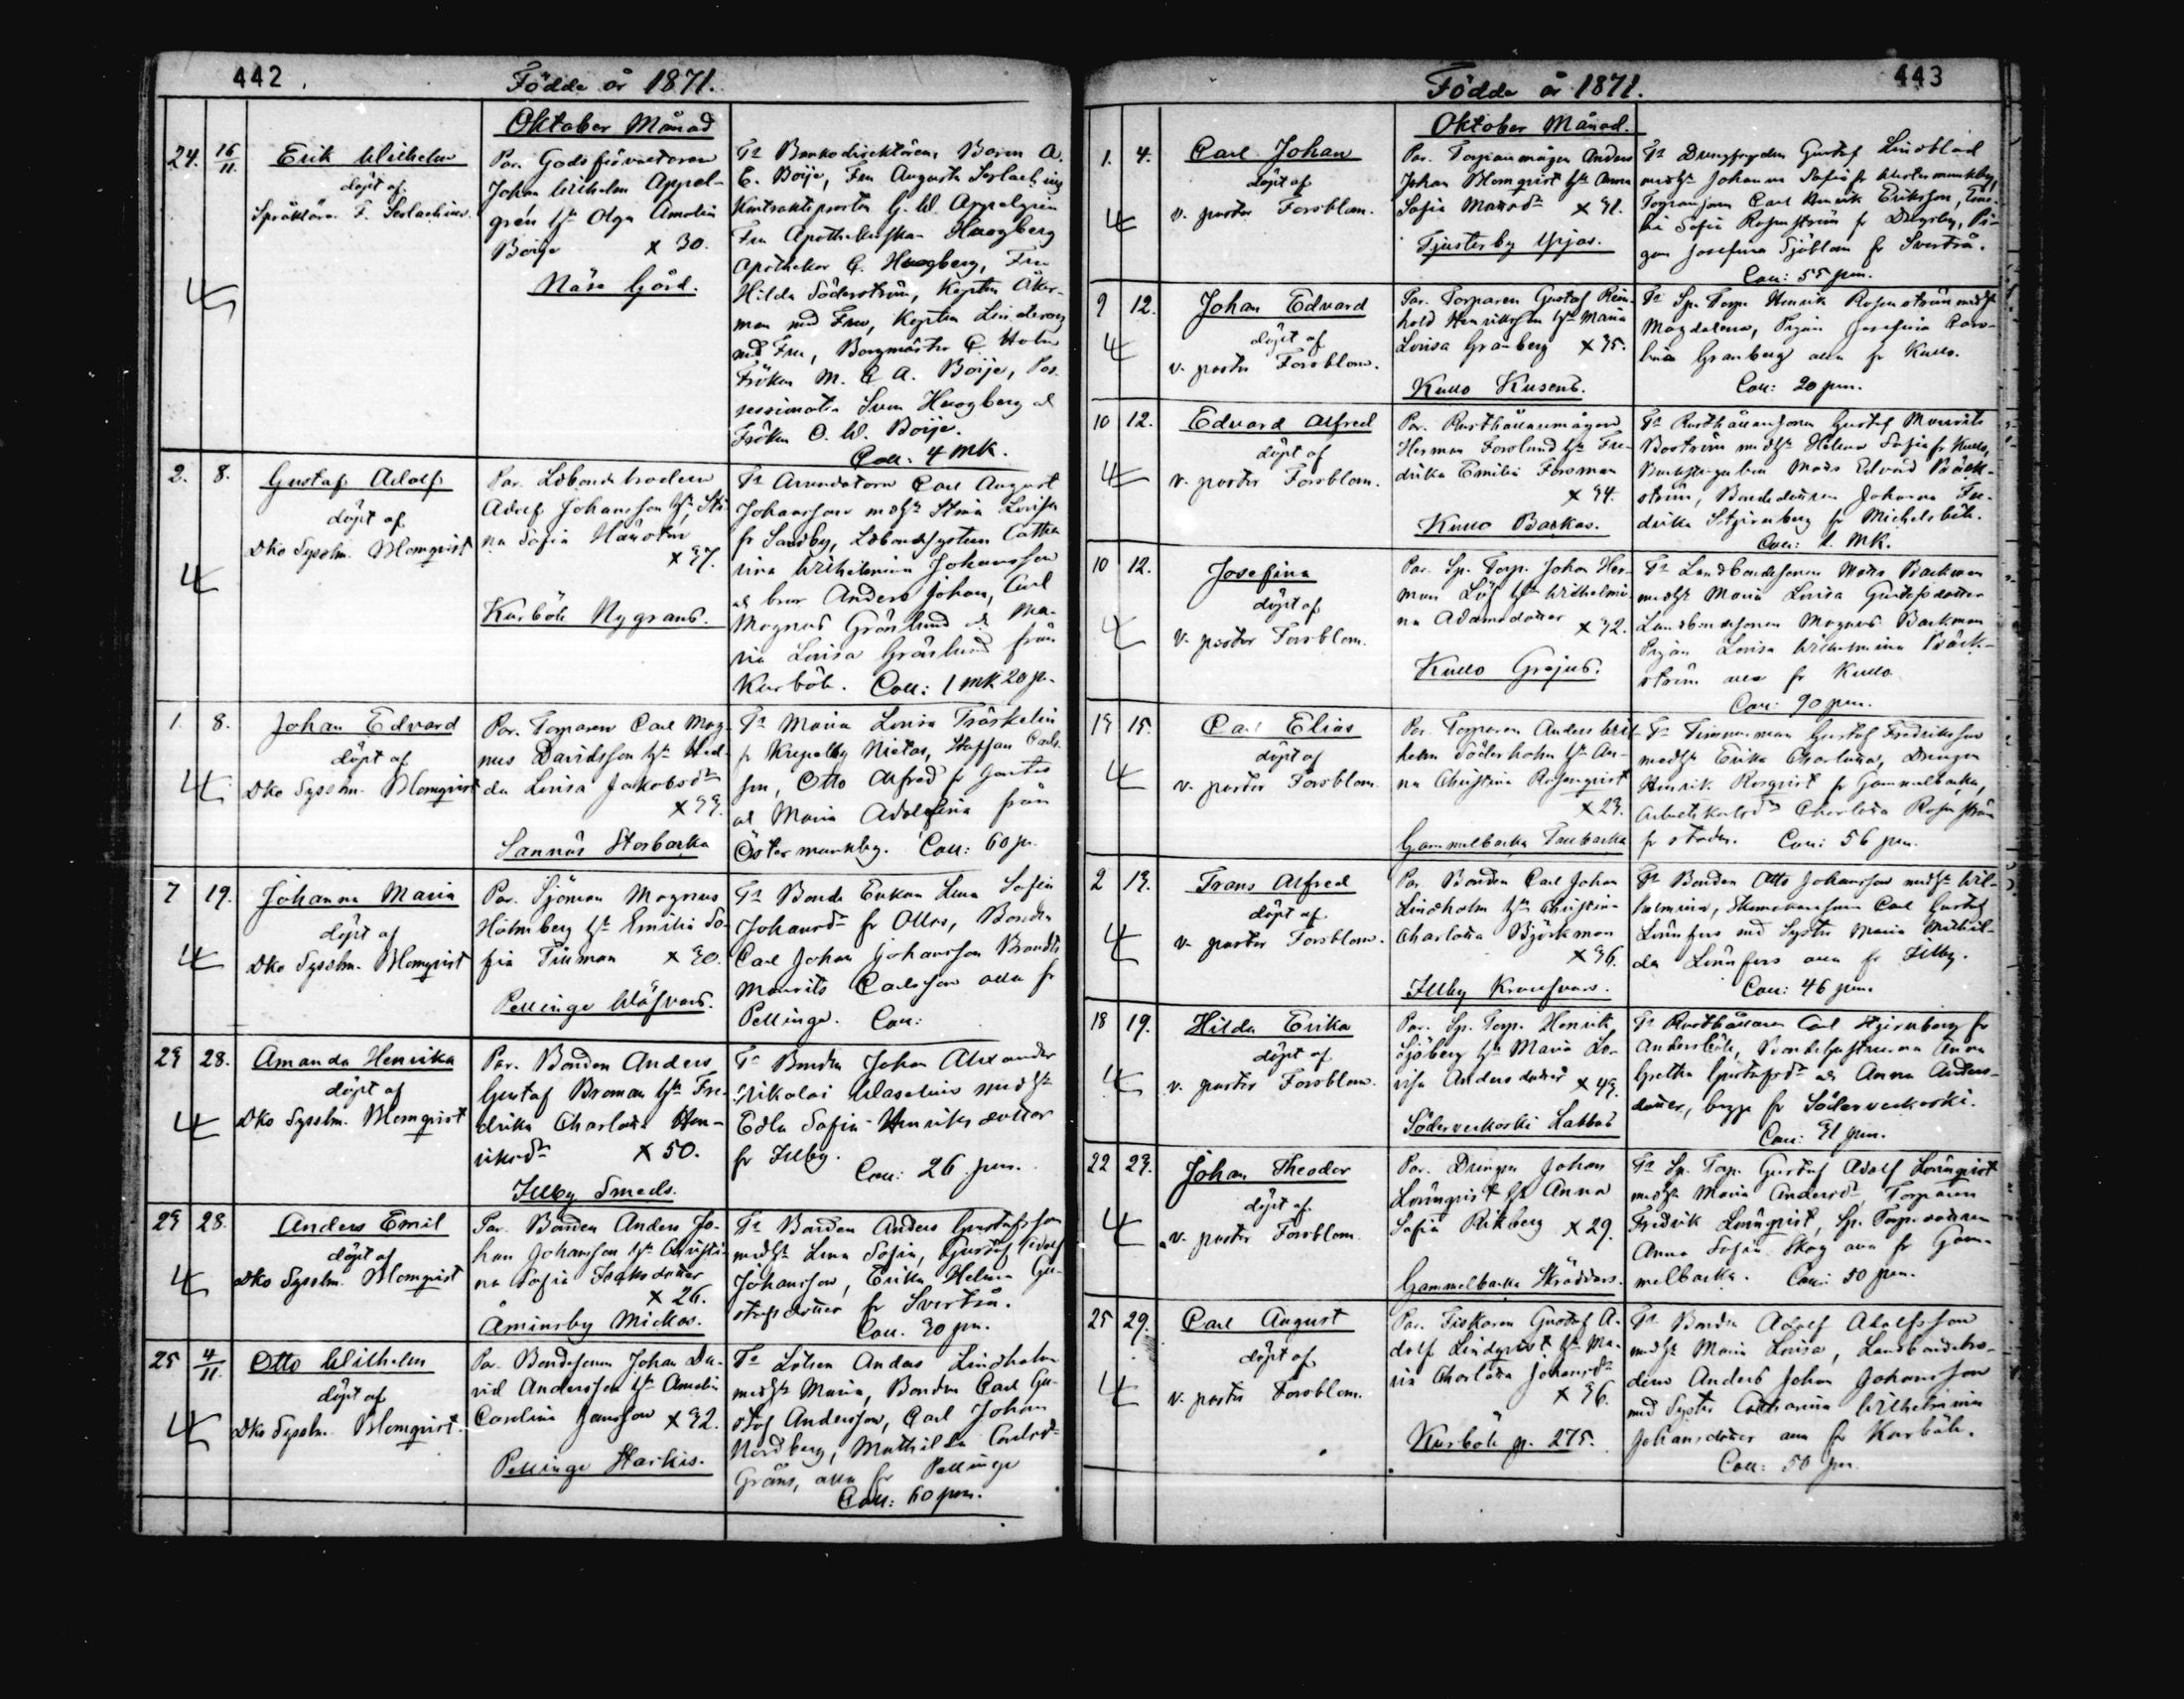 442
Födde år 1871.
Oktober Månad
24. 16/11
Erik Wilhelm
döpt af
Par. Godsförvaltaren
Johan Wilhelm Appel-
gren h. Olga Amalia
Boije x 30.
Näse Gård.
E. Boije, Fru Augusta
Fru Hougberg
Apothekar C. Hougberg, Fru
Hilda Söderström, Kapten Åker-
man med Fru, Kapten
med Fru, Borgmäster C. Holm
Fröken M. & A. Boije, Pos-
Sven Hougberg &
Fröken O. W. Boije.
Coll: 4 mk.
2. 8.
Gustaf Adolf
döpt af
Dko Sysslm. Blomqvist
Adolf Johansson h. Sti-
na Sofia
Carl August
Johansson med h. Stina Lovisa
fr Sandby,
rina Wilhelmina Johansson
Anders Johan, Carl
Magnus Grönlund & Ma-
ria Lovisa Grönlund från
Kurböle. Coll: 1 mk 20 p.
Kurböle Nygrans.
1. 8.
Johan Edvard
döpt af
Dko Sysslm. Blomqvist
Par. Torparen Carl Mag-
nus Davidsson h. Hed-
da Lovisa Jakobsdr
x 33.
Sannäs Storbacka
Maria Lovisa
Staffan Carls-
son, Otto Alfred
& Maria Adolfina från
Östermunkby. Coll: 60 p.
7 19.
Johanna Maria
döpt af
Dko Sysslm. Blomqvist
Par. Sjöman Magnus
Holmberg h. Emilia So-
fia Tillman x 30.
Pellinge
Bonde Enkan Lena Sofia
Johansdr fr Ollas, Bonden
Carl Johan Johansson
Maurits Carlsson alla fr
Pellinge. Coll:
23 28.
Amanda Henrika
döpt af
Dko Sysslm. Blomqvist
Par. Bonden Anders
Gustaf Broman h. Fre-
drika Charlotta Hen-
riksdr x 50.
Illby Smeds.
Bonden Johan Alexander
Nikolai Waselius med h.
Edla Sofia Henriksdotter
fr Illby.
Coll: 26 pm.
23 28.
Anders Emil
döpt af
Dko Sysslm. Blomqvist
Par. Bonden Anders Jo-
han Johansson h. Christi-
na Sofia Isaksdotter
x 26.
Åminsby Mickas.
Bonden Anders Gustafsson
med h. Lena Sofia, Gustaf Adolf
Johansson, Erika Helena Gu-
stafsdotter fr Svartså.
Coll. 30 pm.
25 4/11
Otto Wilhelm
döpt af
Dko Sysslm. Blomqvist.
Par. Bondesonen Johan Da-
vid Andersson h. Amalia
Carolina Jansson x 32.
Pellinge Harkis.
Lotsen Anders Lindholm
med h. Maria, Bonden Carl Gu-
staf Andersson, Carl Johan
Nordberg, Mathilda Carlsdr
Gräns, alla fr Pellinge
Coll: 60 pm.
443
Födde år 1871.
Oktober Månad.
1. 4.
Carl Johan
döpt af
v. pastor Forsblom.
Par. Torparemågen Anders
Johan Blomqvist h. Anna
Sofia x 31.
Tjusterby
Gustaf Lindblad
med h. Johanna Sofia fr Westermunkby,
Torparesonen Carl Henrik Eriksson, Emi-
lia Sofia Rosenström fr Pi-
gan Josefina Sjöblom fr Svartså.
Coll: 55 pm.
9 12.
Johan Edvard
döpt af
v. pastor Forsblom.
Par. Torparen Gustaf Rein-
hold Henriksson h. Maria
Lovisa Granberg x 35.
Kullo Kusens.
Sp. Torp. Henrik Rosenström med h.
Magdalena, Pigan Josefina Caro-
lina Granberg alla fr Kullo.
Coll: 20 pm.
10 12.
Edvard Alfred
döpt af
v. pastor Forsblom.
Par. Rusthållaremågen
Herman Forslund h. Fre-
drika Emilia Forsman
x 34.
Kullo Backas.
Rusthållaresonen Gustaf Maurits
Boström med h. Helena Sofia fr Kullo,
Mats Edvard Bäck-
ström, Bondedottren Johanna Fre-
drika Stjernberg fr Mickelsböle.
Coll: 1. Mk.
10 12.
Josefina
döpt af
v. pastor Forsblom.
Par. Sp. Torp. Johan Her-
man Löf h. Wilhelmi-
na Adamsdotter x 32.
Kullo Grejus.
Landbondesonen Mats Backman
med h. Maria Lovisa Gustafsdotter
Landbondesonen Magnus Backman
Pigan Lovisa Wilhelmina Bäck-
ström alla fr Kullo
Coll: 90 pm.
13 15.
Carl Elias
döpt af
v. pastor Forsblom.
Par. Torparen Anders Wil-
helm Söderholm h. An-
na Christina Rosenqvist
x 23.
Gammelbacka
Timmerman Gustaf Fredriksson
med h. Erika Charlotta, Drengen
Henrik Rosqvist fr Gammelbacka,
Charlotta Rosenström
fr staden. Coll: 56 pm.
2 13.
Frans Alfred
döpt af
v. pastor Forsblom.
Par. Bonden Carl Johan
Lindholm h. Christina
Charlotta Björkman
x 36.
Illby
Bonden Otto Johansson med h. Wil-
helmina, Carl Gustaf
Lönnfors med Syster Maria Mathil-
da Lönnfors alla fr Illby.
Coll: 46 pm.
18 19.
Hilda Erika
döpt af
v. pastor Forsblom.
Par. Sp. Torp. Henrik
Sjöberg h. Maria Lo-
visa Andersdotter x 43.
Söderveckoski Labbas
Rusthållaren Carl Stjernberg fr
Andersböle, Anna
Gretha Gustafsdr & Anna Anders-
dotter, begge fr Söderveckoski.
Coll: 31 pm.
22 23.
Johan Theodor
döpt af
v. pastor Forsblom.
Par. Drengen Johan
Lönnqvist h. Anna
Sofia Rikberg x 29.
Gammelbacka Skräddars.
Sp. Torp. Gustaf Adolf Lönnqvist
med h. Maria Andersdr, Torparen
Fredrik Lönnqvist, Sp. Torp. dottren
Anna Sofia Skog alla fr Gam-
melbacka. Coll: 50 pm.
25 29.
Carl August
döpt af
v. pastor Forsblom.
Par. Fiskaren Gustaf A-
dolf Lindqvist h. Ma-
ria Charlotta Johansdr
x 36.
Kurböle p. 275.
Bonden Adolf Adolfsson
med h. Maria Lovisa, Landbondebro-
dern Anders Johan Johansson
med Syster Catharina Wilhelmina
Johansdotter alla fr Kurböle.
Coll: 50 pm.